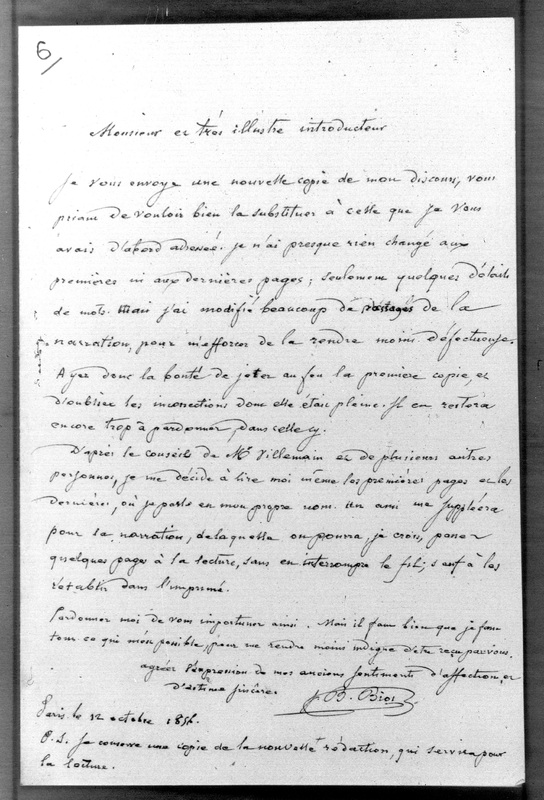 6/
Monsieur et très illustre introducteur
Je vous envoye une nouvelle copie de mon discours, vous
priant de vouloir bien la substituer à celle que je vous
avais d'abord adressée. Je n'ai presque rien changé aux
premières ni aux dernières pages; seulement quelques détails
de mots. Mais j'ai modifié beaucoup de passages de la
narration, pour m'efforcer de la rendre moins défectueuse.
Ayez donc la bonté de jeter au feu la première copie, et
d'oublier les incorrections dont elle était pleine. Il en restera
encore trop à pardonner, dans celle cy.
D'après le conseil de Mr Villemain et de plusieurs autres
personnes, je me décide à lire moi même les premières pages et les
dernières, où je parle en mon propre nom. Un ami me suppléera
pour la narration, de laquelle on pourra, je crois, passer
quelques pages à la lecture, sans en interrompre le fil; sauf à les
rétablir dans l'imprimé.
Pardonnez moi de vous importuner ainsi. Mais il faut bien que je fasse
tout ce qui m'est possible, pour me rendre moins indigne d'être reçu par vous.
agréez l'expression de mes anciens sentiments d'affection, et
d'estime sincère.
J. B. Biot
Paris le 12 octobre 1856.
P.S. Je conserve une copie de la nouvelle rédaction, qui servira pour
la lecture.